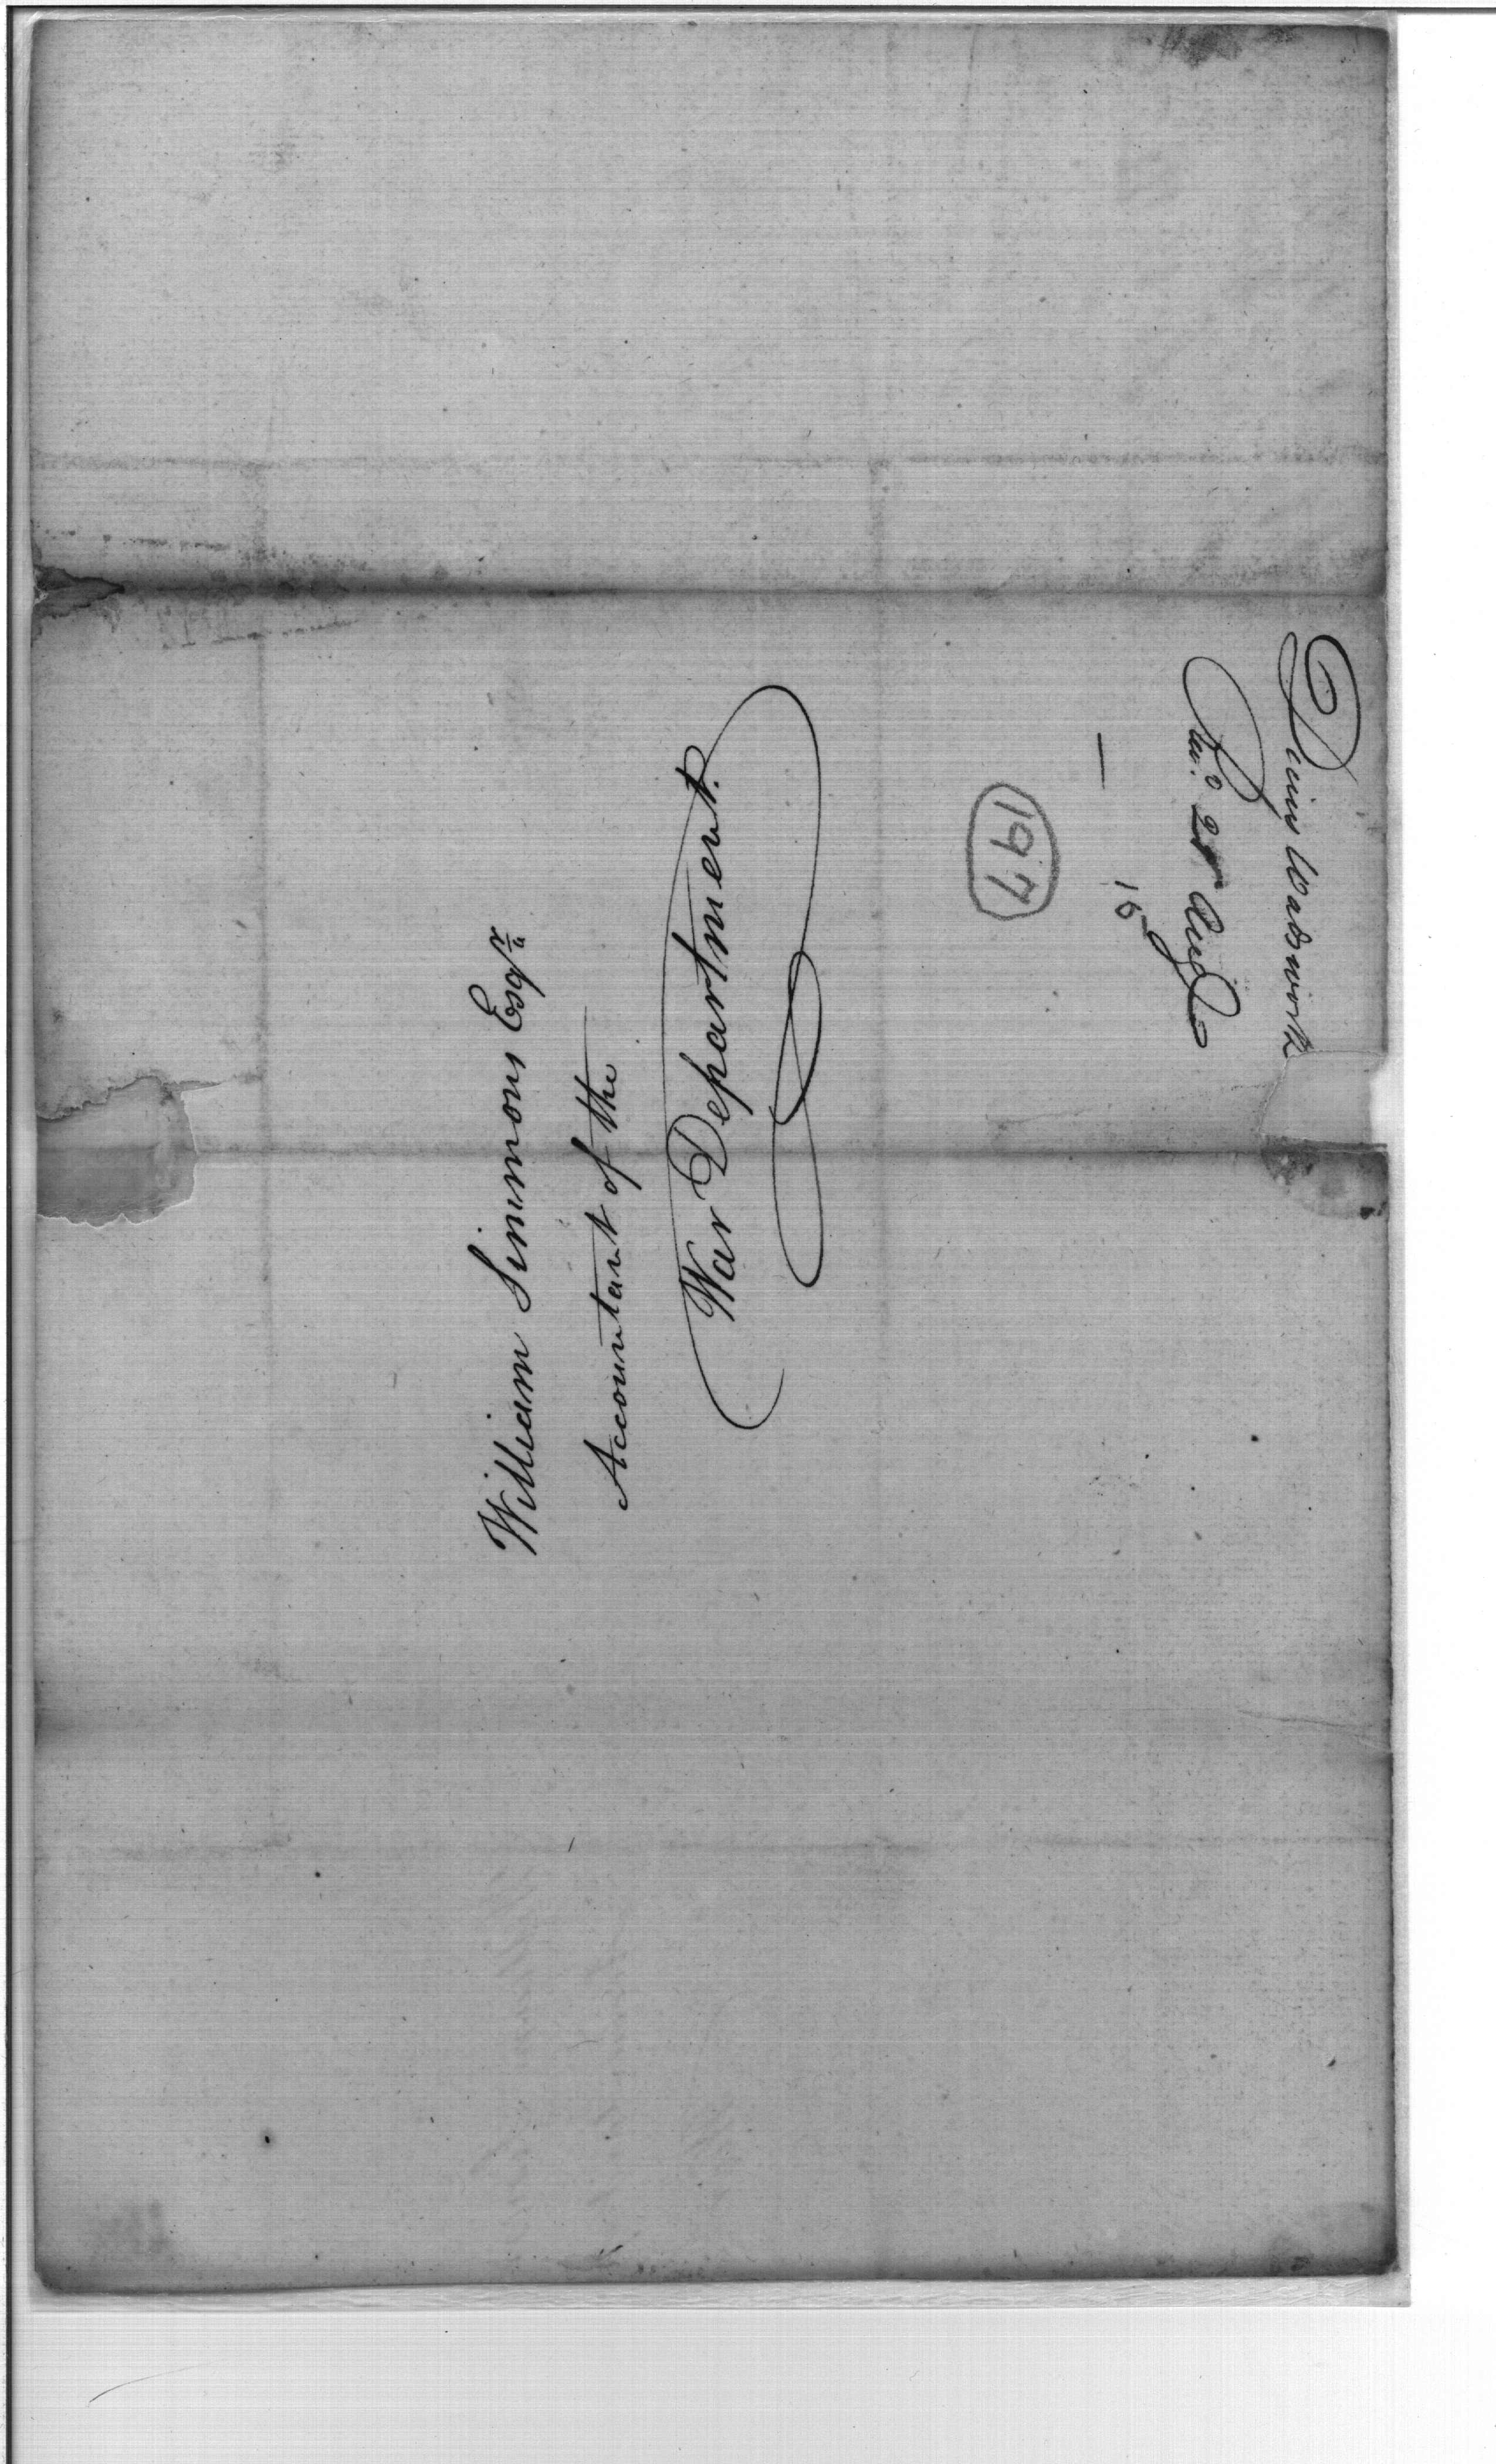 William Simmons Esqr
Accountant of the
War Department.
Denis Wadsworth
Rec.d 28 Aug
15
197